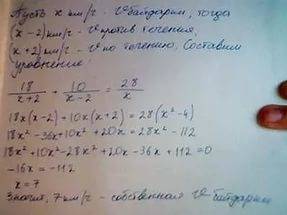 Пусть x км/ч - v байдарки, тогда
(x-2) км/ч - v против течения,
(x+2) км/ч - v по течению. Составим
уравнение:
18/(x+2) + 10/(x-2) = 28/x
18x(x-2) + 10x(x+2) = 28(x²-4)
18x² - 36x + 10x² + 20x = 28x² - 112
18x² + 10x² - 28x² + 20x - 36x + 112 = 0
-16x = -112
x = 7
Значит, 7 км/ч - собственная v байдарки